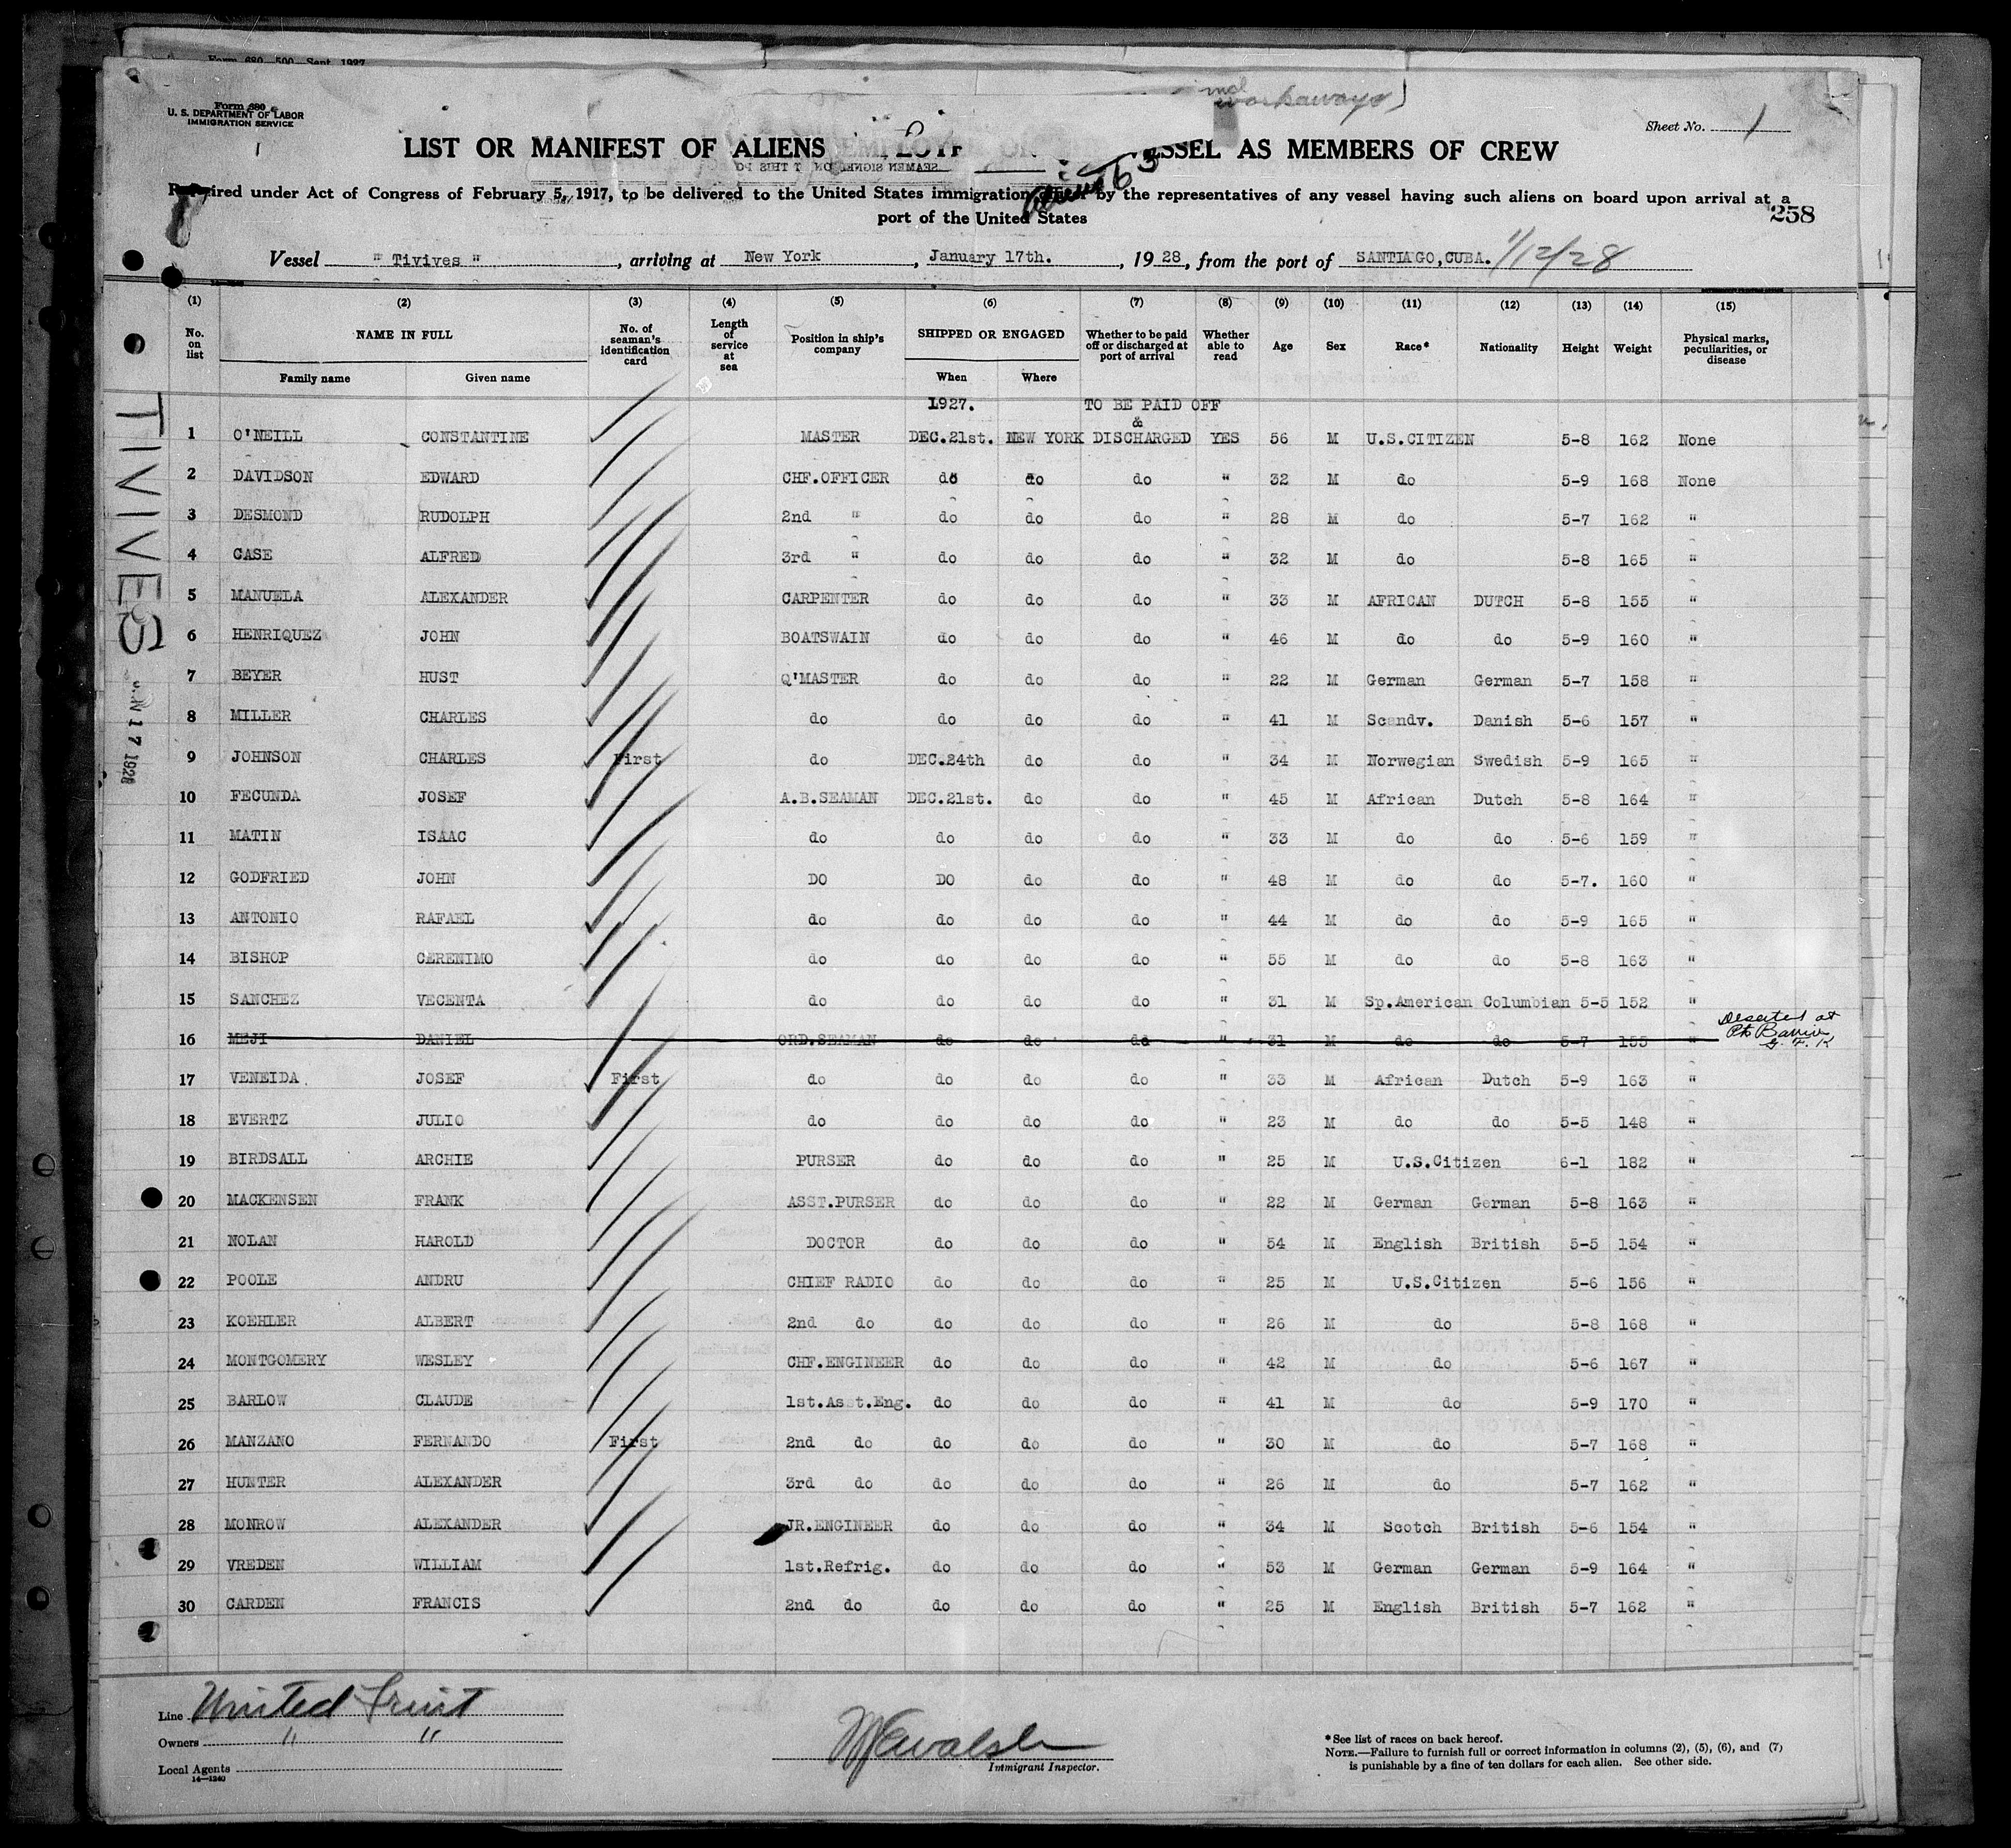 Form 680 500 Sept 1927
Form 680
U. S. DEPARTMENT OF LABOR
IMMIGRATION SERVICE
workaways)
Sheet No. 1
LIST OR MANIFEST OF ALIENS EMPLOYE ON ESSEL AS MEMBERS OF CREW
SEAMEN SIGNED ON THIS
63
ired under Act of Congress of February 5, 1917, to be delivered to the United States immigration by the representatives of any vessel having such aliens on board upon arrival at a
port of the United States
258
Vessel " Tivives ", arriving at New York, January 17th., 1928, from the port of SANTIAGO,CUBA. 1/12/28
(1) (2) (3) (4) (5) (6) (7) (8) (9) (10) (11) (12) (13) (14) (15)
No. on list NAME IN FULL No. of seaman's identification card Length of service at sea Position in ship's company SHIPPED OR ENGAGED Whether to be paid off or discharged at port of arrival Whether able to read Age Sex Race* Nationality Height Weight Physical marks, peculiarities, or disease
Family name Given name When Where
1927. TO BE PAID OFF
&
1 O'NEILL CONSTANTINE MASTER DEC.21st. NEW YORK DISCHARGED YES 56 M U.S.CITIZEN 5-8 162 None
2 DAVIDSON EDWARD CHF.OFFICER do do do " 32 M do 5-9 168 None
3 DESMOND RUDOLPH 2nd " do do do " 28 M do 5-7 162 "
4 CASE ALFRED 3rd " do do do " 32 M do 5-8 165 "
5 MANUELA ALEXANDER CARPENTER do do do " 33 M AFRICAN DUTCH 5-8 155 "
6 HENRIQUEZ JOHN BOATSWAIN do do do " 46 M do do 5-9 160 "
7 BEYER HUST Q'MASTER do do do " 22 M German German 5-7 158 "
8 MILLER CHARLES do do do do " 41 M Scandv. Danish 5-6 157 "
9 JOHNSON CHARLES First do DEC.24th do do " 34 M Norwegian Swedish 5-9 165 "
10 FECUNDA JOSEF A.B.SEAMAN DEC.21st. do do " 45 M African Dutch 5-8 164 "
11 MATIN ISAAC do do do do " 33 M do do 5-6 159 "
12 GODFRIED JOHN DO DO do do " 48 M do do 5-7. 160 "
13 ANTONIO RAFAEL do do do do " 44 M do do 5-9 165 "
14 BISHOP CERENIMO do do do do " 55 M do do 5-8 163 "
15 SANCHEZ VECENTA do do do do " 31 M Sp.American Columbian 5-5 152 "
16 MEJI DANIEL ORD.SEAMAN do do do " 31 M do do 5-7 155 " Deserted at
Pto Barrios
G. F. K
17 VENEIDA JOSEF First do do do do " 33 M African Dutch 5-9 163 "
18 EVERTZ JULIO do do do do " 23 M do do 5-5 148 "
19 BIRDSALL ARCHIE PURSER do do do " 25 M U.S.Citizen 6-1 182 "
20 MACKENSEN FRANK ASST.PURSER do do do " 22 M German German 5-8 163 "
21 NOLAN HAROLD DOCTOR do do do " 54 M English British 5-5 154 "
22 POOLE ANDRU CHIEF RADIO do do do " 25 M U.S.Citizen 5-6 156 "
23 KOEHLER ALBERT 2nd do do do do " 26 M do 5-8 168 "
24 MONTGOMERY WESLEY CHF.ENGINEER do do do " 42 M do 5-6 167 "
25 BARLOW CLAUDE 1st.Asst.Eng. do do do " 41 M do 5-9 170 "
26 MANZANO FERNANDO First 2nd do do do do " 30 M do 5-7 168 "
27 HUNTER ALEXANDER 3rd do do do do " 26 M do 5-7 162 "
28 MONROW ALEXANDER JR.ENGINEER do do do " 34 M Scotch British 5-6 154 "
29 VREDEN WILLIAM 1st.Refrig. do do do " 53 M German German 5-9 164 "
30 CARDEN FRANCIS 2nd do do do do " 25 M English British 5-7 162 "
TIVIVES
JAN 17 1928
Line United Fruit
Owners " "
Local Agents
14—1240
Walsh
Immigrant Inspector.
*See list of races on back hereof.
NOTE.—Failure to furnish full or correct information in columns (2), (5), (6), and (7)
is punishable by a fine of ten dollars for each alien. See other side.